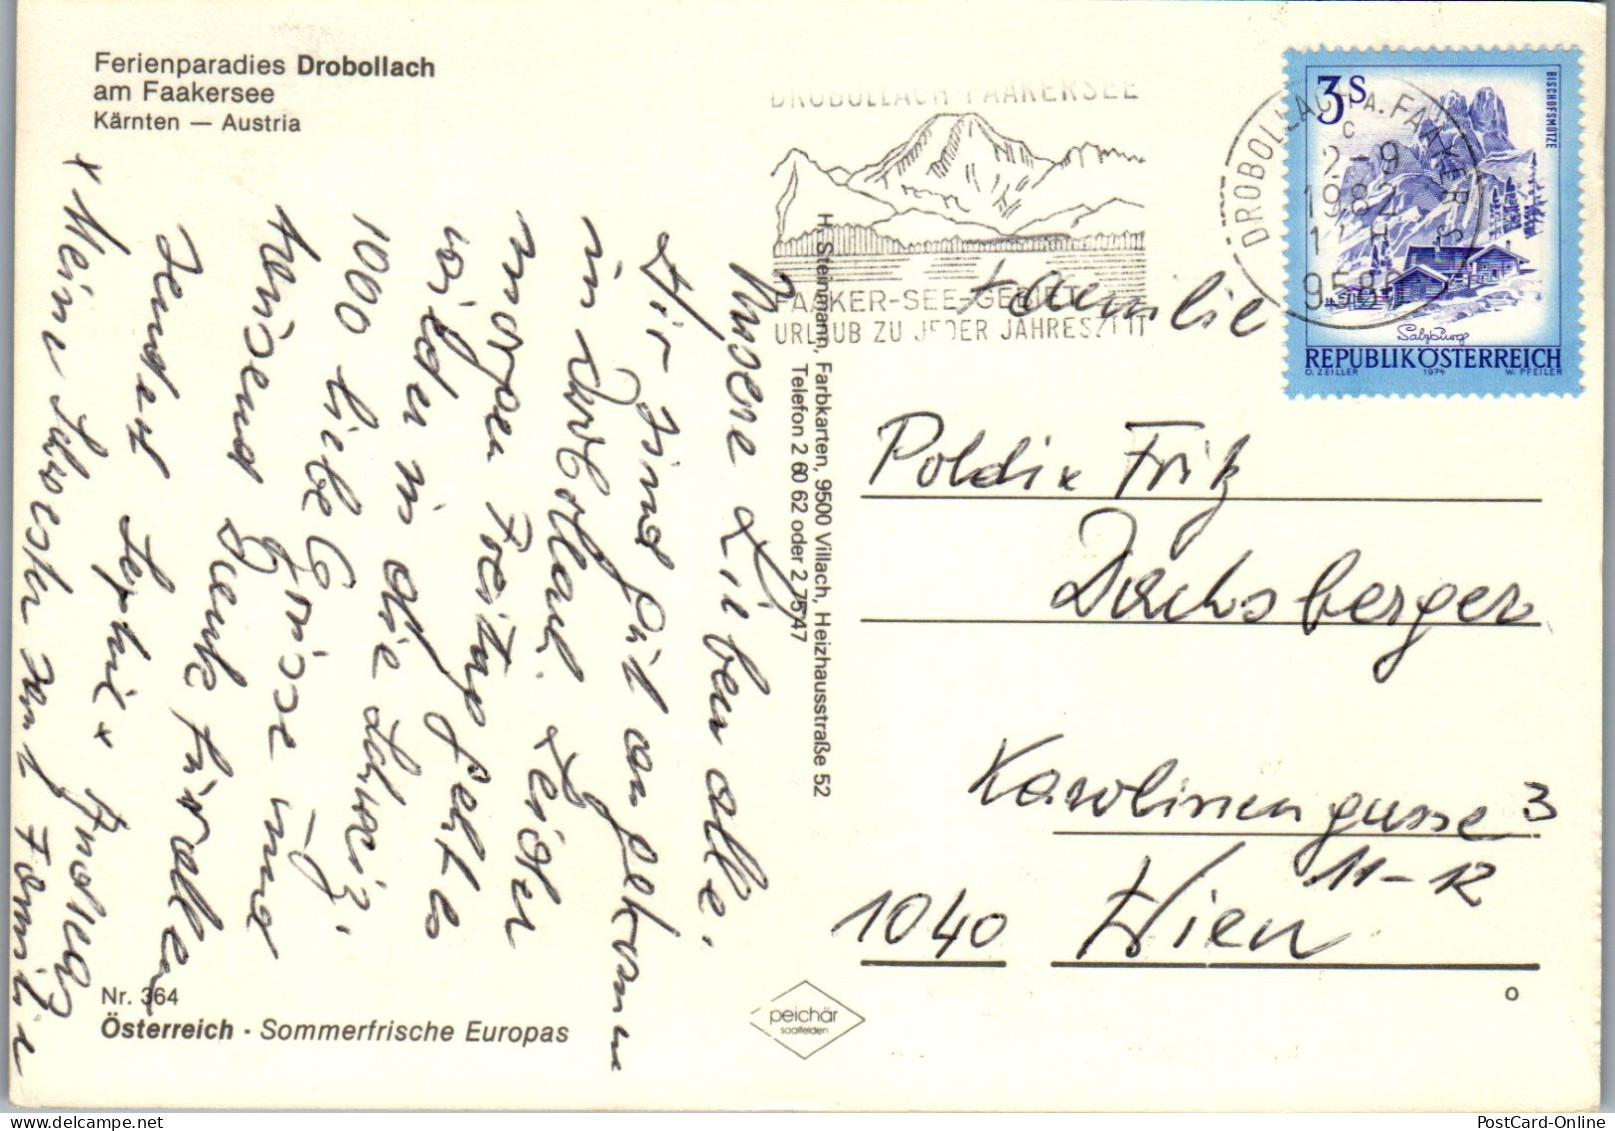 Ferienparadies Drobollach
am Faakersee
Kärnten — Austria
DROBOLLACH-FAAKERSEE
FAAKER-SEE-GEBIET
URLAUB ZU JEDER JAHRESZEIT
DROBOLLACH A. FAAKERS.
C
2-9
1982
9580
3S
BISCHOFSMÜTZE
Salzburg
REPUBLIK ÖSTERREICH
O. ZEILLER 1974 W. PFEILER
Unsere Lieben alle.
Wir sind gut angekommen
in Drobollach. Leider
morgen Freitag geht es
wieder in die Schweiz.
1000 liebe Grüsse und
tausend Danke für alles
Sephie + Andreas
x Meine Schwester samt Familie
H. Steinmann, Farbkarten, 9500 Villach, Heizhausstraße 52
Telefon 2 60 62 oder 2 75 47
Familie
Poldi x Fritz
Dachsberger
Karolinengasse 3
11-12
1040 Wien
Nr. 364
Österreich - Sommerfrische Europas
peichär
saalfelden
o
PostCard-Online.com